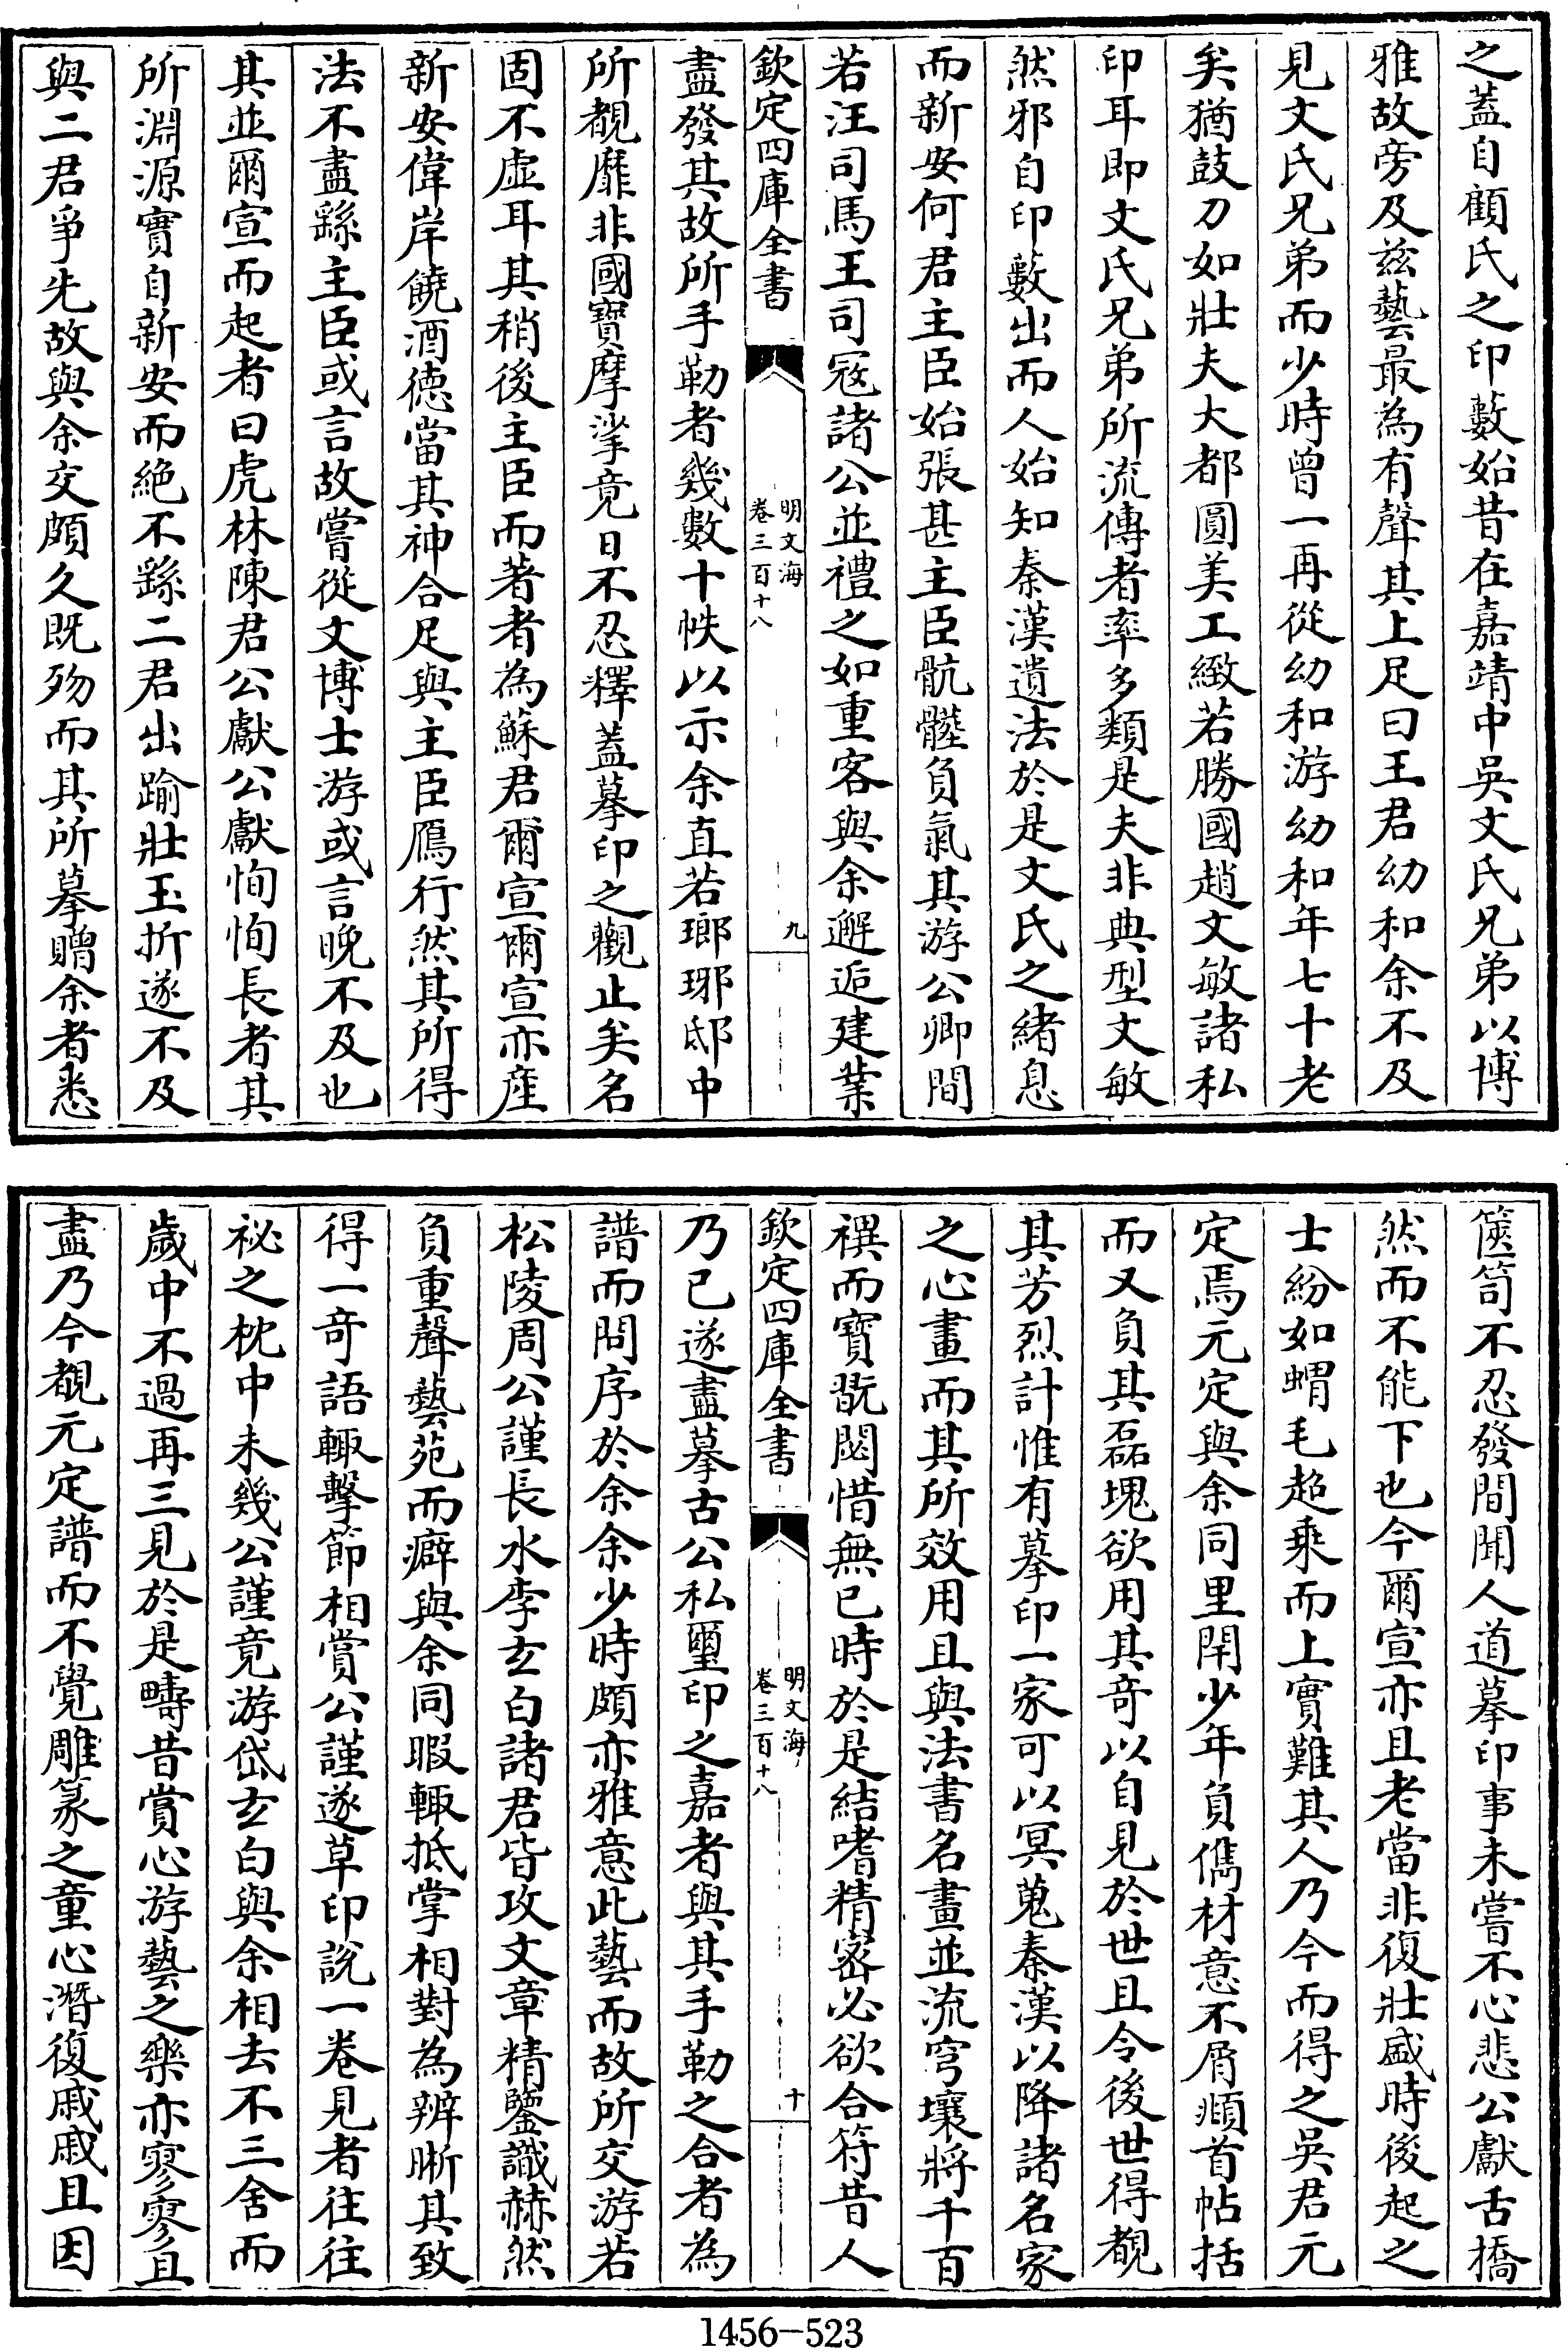 之蓋自顧氏之印藪始昔在嘉靖中吳文氏兄弟以博
雅故旁及茲藝最為有聲其上足曰王君幼和余不及
見文氏兄弟而少時曾一再從幼和游幼和年七十老
矣猶鼓刀如壯夫大都圓美工緻若勝國趙文敏諸私
印耳即文氏兄弟所流傳者率多類是夫非典型文敏
然邪自印藪出而人始知秦漢遺法於是文氏之緒息
而新安何君主臣始張甚主臣骯髒負氣其游公卿間
若汪司馬王司寇諸公並禮之如重客與余邂逅建業
欽定四庫全書
明文海
卷三百十八
九
盡發其故所手勒者幾數十帙以示余直若瑯琊邸中
所覩靡非國寶摩挲竟日不忍釋蓋摹印之觀止矣名
固不虛耳其稍後主臣而著者為蘇君爾宣爾宣亦產
新安偉岸饒酒德當其神合足與主臣鴈行然其所得
法不盡繇主臣或言故嘗從文博士游或言晚不及也
其並爾宣而起者曰虎林陳君公獻公獻恂恂長者其
所淵源實自新安而絕不繇二君出踰壯玉折遂不及
與二君爭先故與余交頗久既歿而其所摹贈余者悉
篋笥不忍發間聞人道摹印事未嘗不心悲公獻舌撟
然而不能下也今爾宣亦且老當非復壯盛時後起之
士紛如蝟毛超乘而上實難其人乃今而得之吳君元
定焉元定與余同里閈少年負儁材意不屑頫首帖括
而又負其磊塊欲用其奇以自見於世且令後世得覩
其芳烈計惟有摹印一家可以冥蒐秦漢以降諸名家
之心畫而其所效用且與法書名畫並流穹壤將千百
禩而寶翫閟惜無已時於是結嗜精宻必欲合符昔人
欽定四庫全書
明文海
卷三百十八
十
乃已遂盡摹古公私璽印之嘉者與其手勒之合者為
譜而問序於余余少時頗亦雅意此藝而故所交游若
松陵周公謹長水李玄白諸君皆攻文章精鑒識赫然
負重聲藝苑而癖與余同暇輙抵掌相對為辨晰其致
得一奇語輙擊節相賞公謹遂草印說一卷見者往往
祕之枕中未幾公謹竟游岱玄白與余相去不三舍而
歲中不過再三見於是疇昔賞心游藝之樂亦寥寥且
盡乃今覩元定譜而不覺雕篆之童心潛復戚戚且因
1456-523